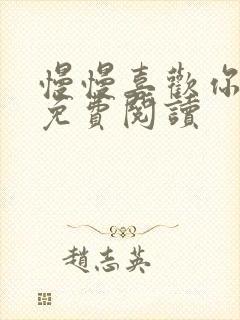 慢慢喜歡你
免費閱讀
趙志英